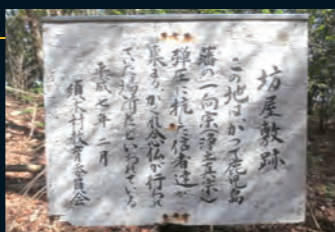 坊屋敷跡
この地はかつて鹿児島
藩の一向宗(浄土真宗)
弾圧に抗した信者達が
集まりかくれ念仏が行われ
ていた場所だといわれている
平成七年二月
須木村教育委員会